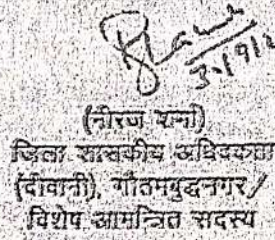 (नीरज शर्मा)
जिला शासकीय अधिवक्ता
(दीवानी), गौतमबुद्धनगर/
विशेष आमन्त्रित सदस्य